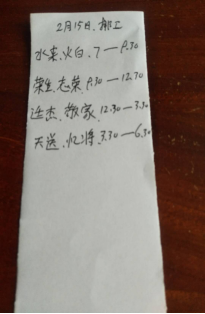 2月15日.郝工
水泉.火白.7—9.30
荣生.志荣.9.30—12.30
连杰.敬家.12.30—3.30
天送.忆将.3.30—6.30